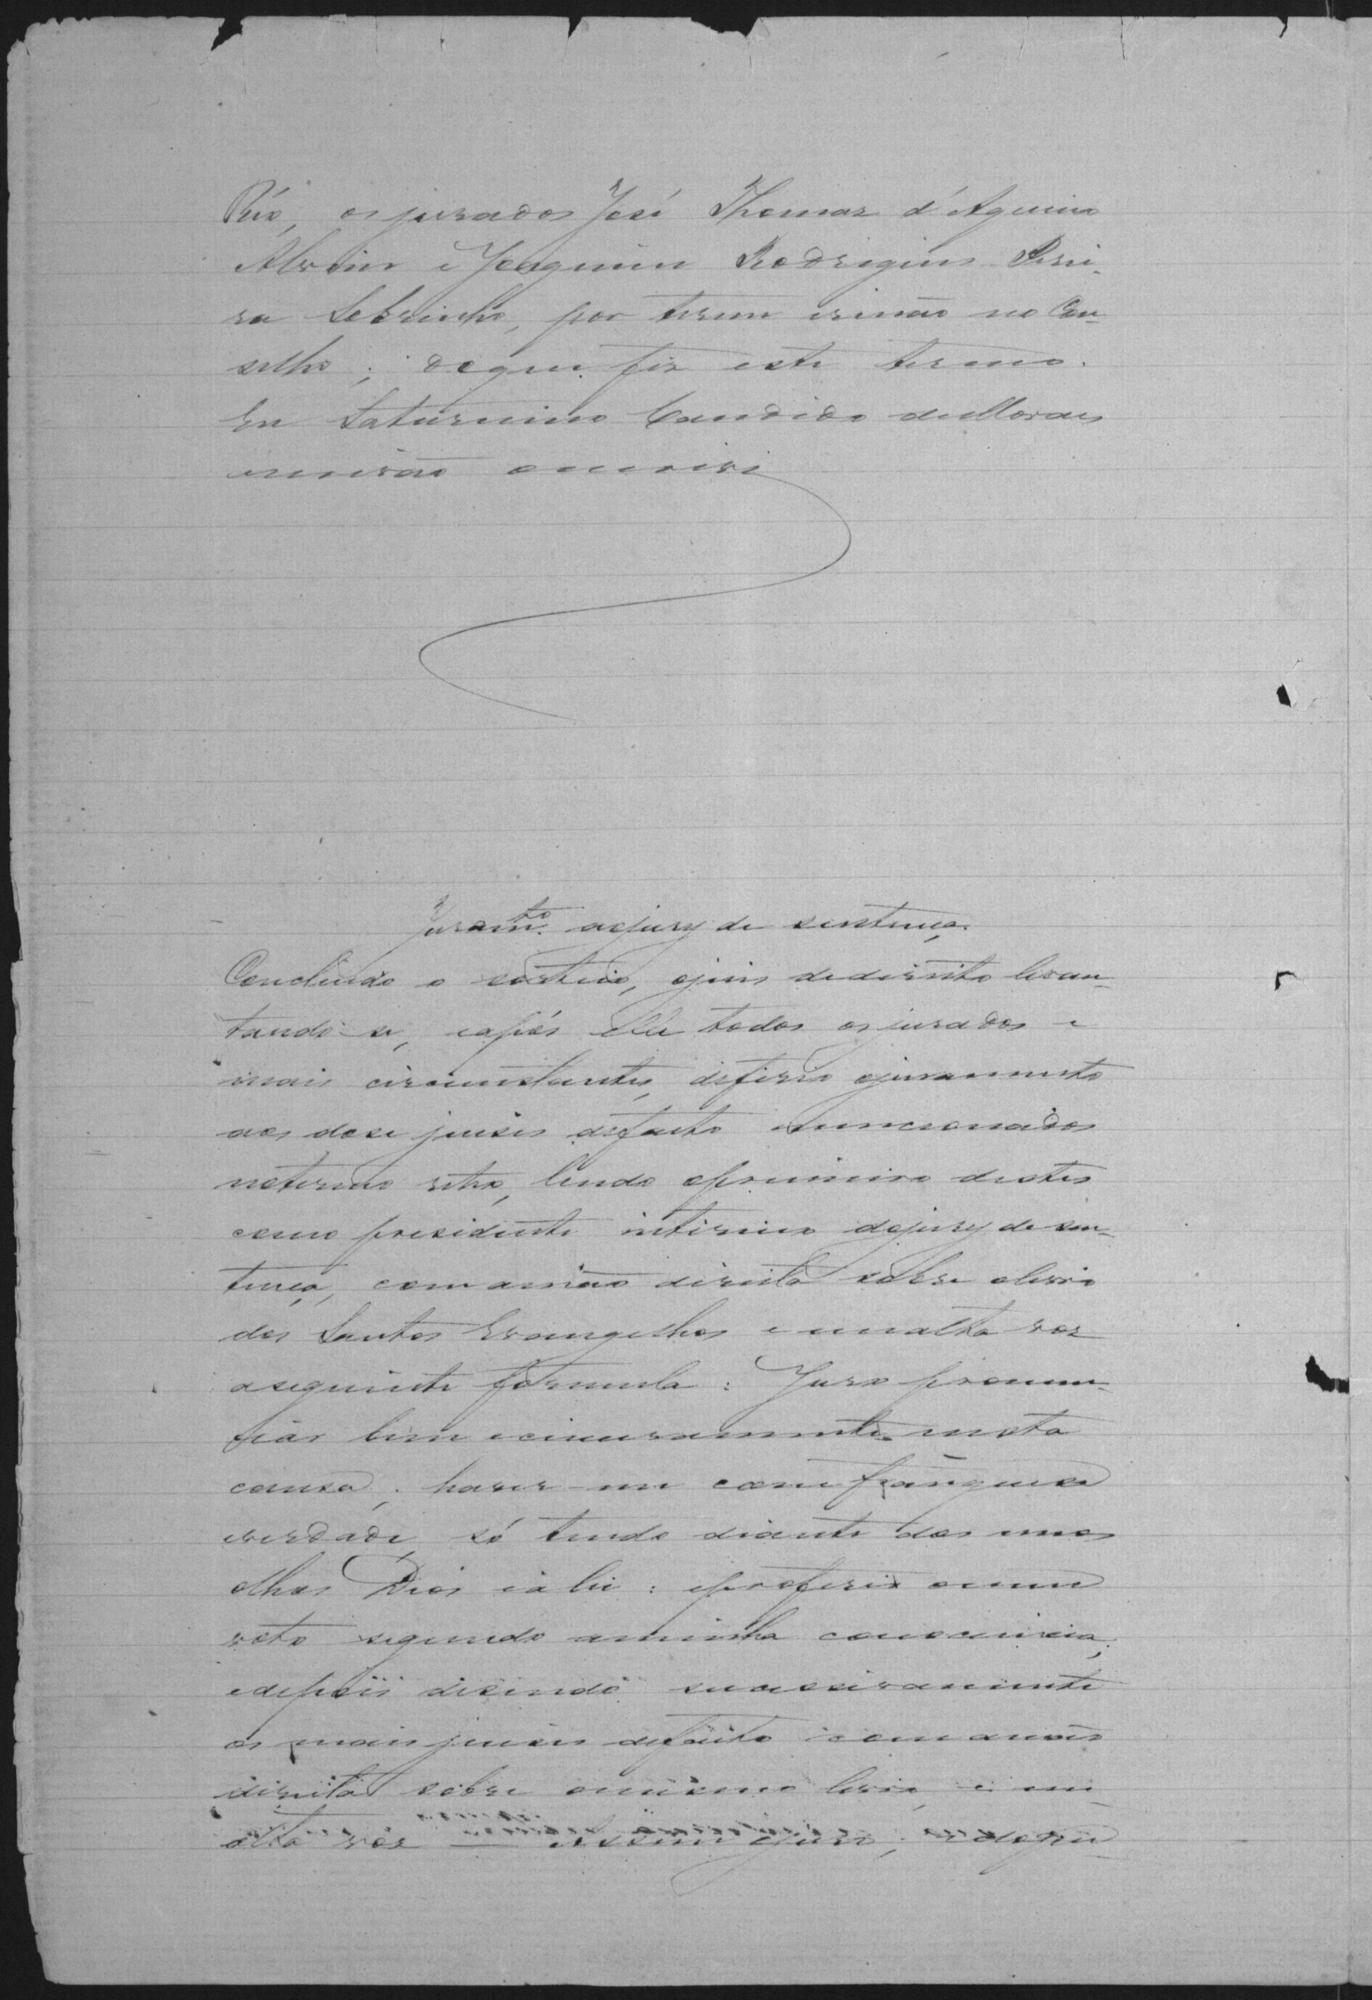 Réo, os jurados José Thomas d'Aquino
Alvim e Joaquim Rodrigues Perei-
ra Sobrinho, por terem irmão no Con-
selho; do que fiz este termo.
Eu Saturnino Candido de Moraes
escrivão o escrevi
Juram.to ao jury de sentença.
Concluido o sorteio, o juis de direito levan-
tando-se, e após elle todos os jurados e
mais circunstantes, deferio o juramento
aos dose juises de facto mencionados
no termo retro, lendo o primeiro destes
como presidente interino do jury de sen-
tença, com a mão direita sobre o livro
dos Santos Evangelhos e em alta voz
a seguinte formula: Juro pronun-
ciar bem e sinceramente nesta
causa; haver-me com franquesa
e verdade, só tendo diante dos meus
olhos Deos e a lei: e proferir o meu
voto segundo a minha consciencia;
e depois disendo successivamente
os mais juises de facto e com a mão
direita sobre o mesmo livro, e em
alta voz — Assim o juro; do que